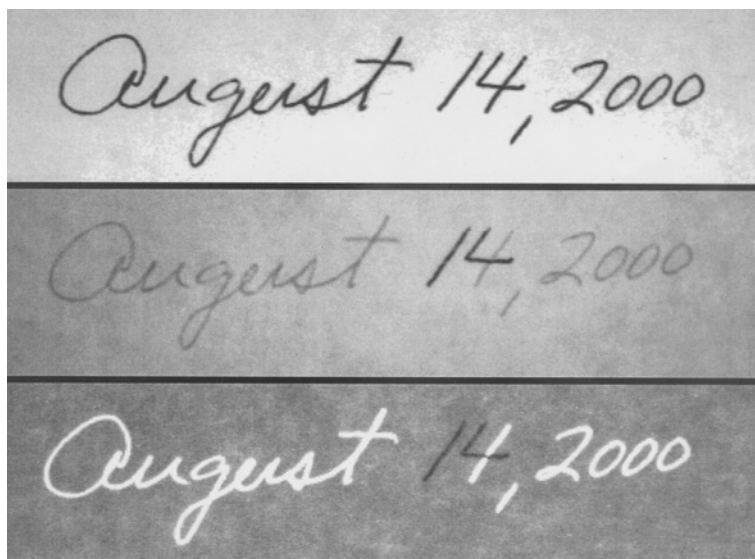 August 14, 2000
August 14, 2000
August 14, 2000